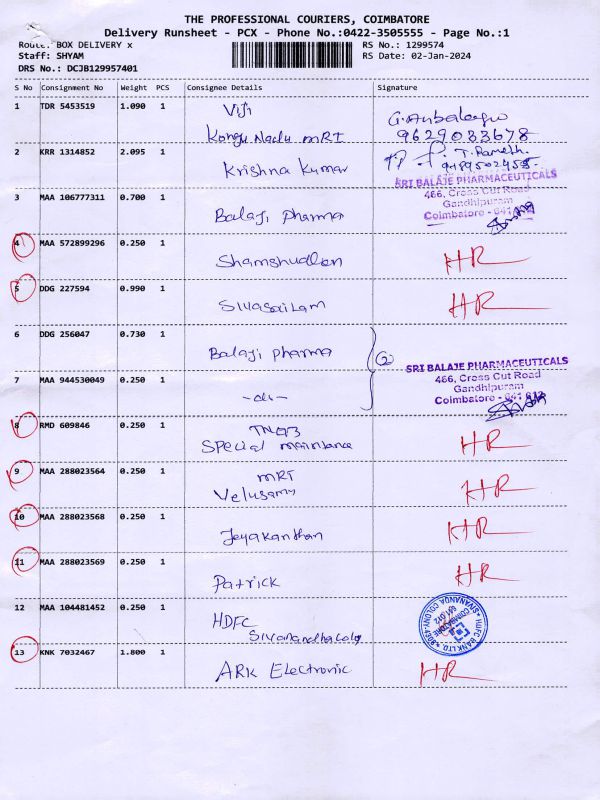 THE PROFESSIONAL COURIERS, COIMBATORE
Delivery Runsheet - PCX - Phone No.:0422-3505555 - Page No.:1
Route: BOX DELIVERY x
RS No.: 1299574
Staff: SHYAM
RS Date: 02-Jan-2024
DRS No.: DCJB129957401
S No Consignment No Weight PCS Consignee Details Signature
1 TDR 5453519 1.090 1 Viji
Kongu Nadu MRI
9629083678
2 KRR 1314852 2.095 1 Krishna Kumar
T. Ramesh.
9489502455
3 MAA 106777311 0.700 1 Balaji pharma
SRI BALAJE PHARMACEUTICALS
466, Cross Cut Road
Gandhipuram
Coimbatore - 641 012
4 MAA 572899296 0.250 1 Shamshudeen HR
5 DDG 227594 0.990 1 Sivasailam HR
6 DDG 256047 0.730 1 Balaji pharma 2
7 MAA 944530049 0.250 1 -do-
SRI BALAJE PHARMACEUTICALS
466, Cross Cut Road
Gandhipuram
Coimbatore - 641 012
8 RMD 609846 0.250 1 TNEB
Special maintance HR
9 MAA 288023564 0.250 1 MRT
Velusamy HR
10 MAA 288023568 0.250 1 Jeyakanthan HR
11 MAA 288023569 0.250 1 Patrick HR
12 MAA 104481452 0.250 1 HDFC
Sivanandha coloy
HDFC BANK LTD. SIVANANDA COLONY
COIMBATORE
641 012
13 KNK 7032467 1.800 1 ARK Electronic HR